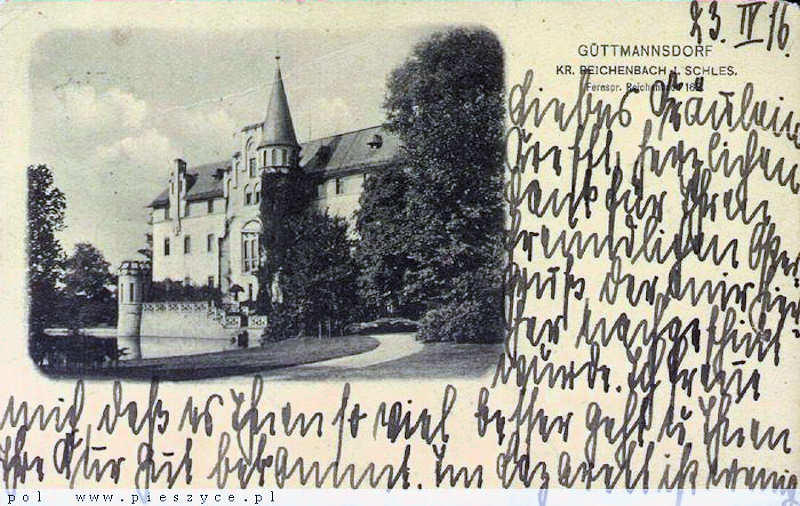 23. IV 16.
GÜTTMANNSDORF
KR. REICHENBACH I. SCHLES.
Fernspr. Reichenbach 16
Liebes Fräulein
Trefft, herzlichen
Dank für Ihren
freundlichen Oster
gruß, der mir hier
her nachgeschickt
wurde. Ich freue
mich daß es Ihnen so viel besser geht u. Ihnen
Ihre Kur gut bekommt. Im Lazarett ist wenig
pol www.pieszyce.pl